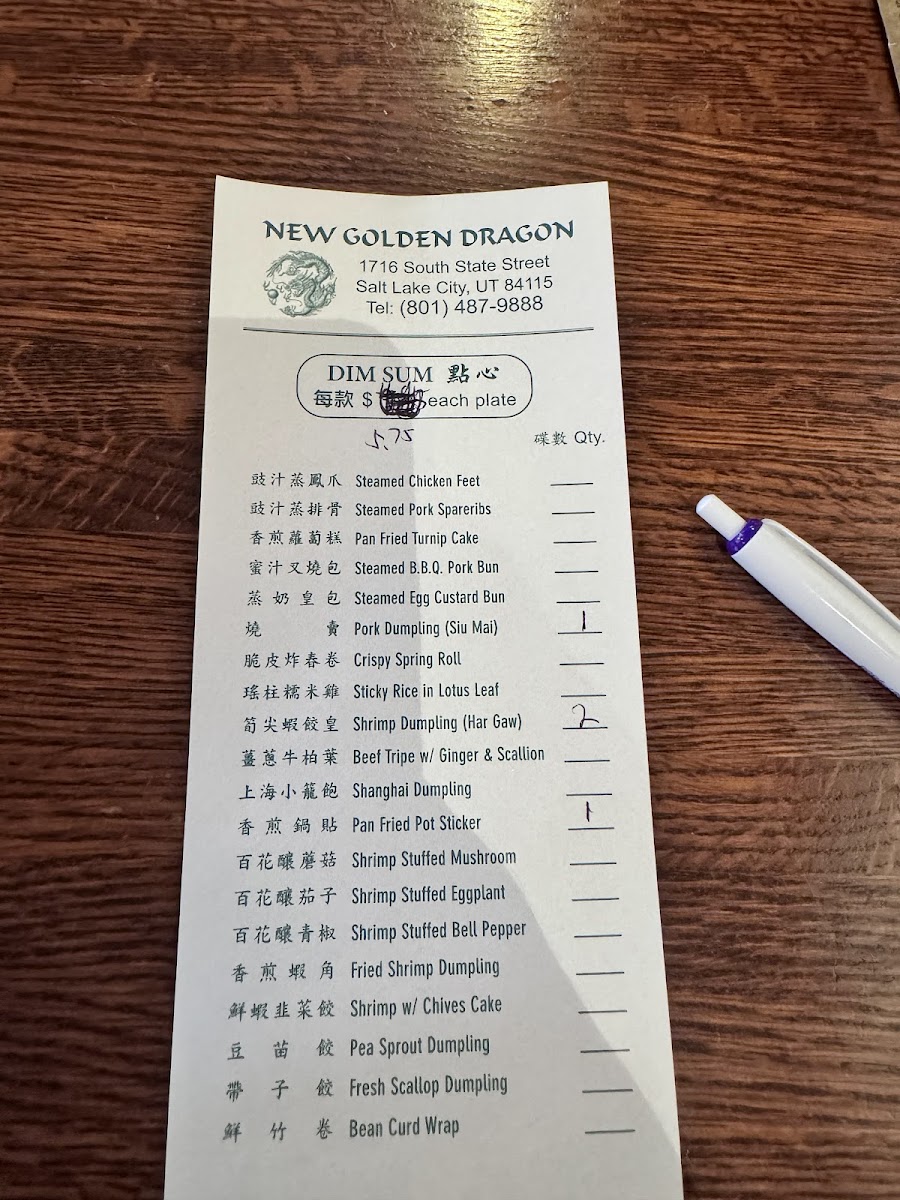 NEW GOLDEN DRAGON
1716 South State Street
Salt Lake City, UT 84115
Tel: (801) 487-9888
DIM SUM 點心
每款 $ each plate
5.75
碟數 Qty.
豉汁蒸鳳爪 Steamed Chicken Feet
豉汁蒸排骨 Steamed Pork Spareribs
香煎蘿蔔糕 Pan Fried Turnip Cake
蜜汁叉燒包 Steamed B.B.Q. Pork Bun
蒸奶皇包 Steamed Egg Custard Bun
燒賣 Pork Dumpling (Siu Mai) 1
脆皮炸春卷 Crispy Spring Roll
瑤柱糯米雞 Sticky Rice in Lotus Leaf
筍尖蝦餃皇 Shrimp Dumpling (Har Gaw) 2
薑蔥牛柏葉 Beef Tripe w/ Ginger & Scallion
上海小籠飽 Shanghai Dumpling
香煎鍋貼 Pan Fried Pot Sticker 1
百花釀蘑菇 Shrimp Stuffed Mushroom
百花釀茄子 Shrimp Stuffed Eggplant
百花釀青椒 Shrimp Stuffed Bell Pepper
香煎蝦角 Fried Shrimp Dumpling
鮮蝦韭菜餃 Shrimp w/ Chives Cake
豆苗餃 Pea Sprout Dumpling
帶子餃 Fresh Scallop Dumpling
鮮竹卷 Bean Curd Wrap